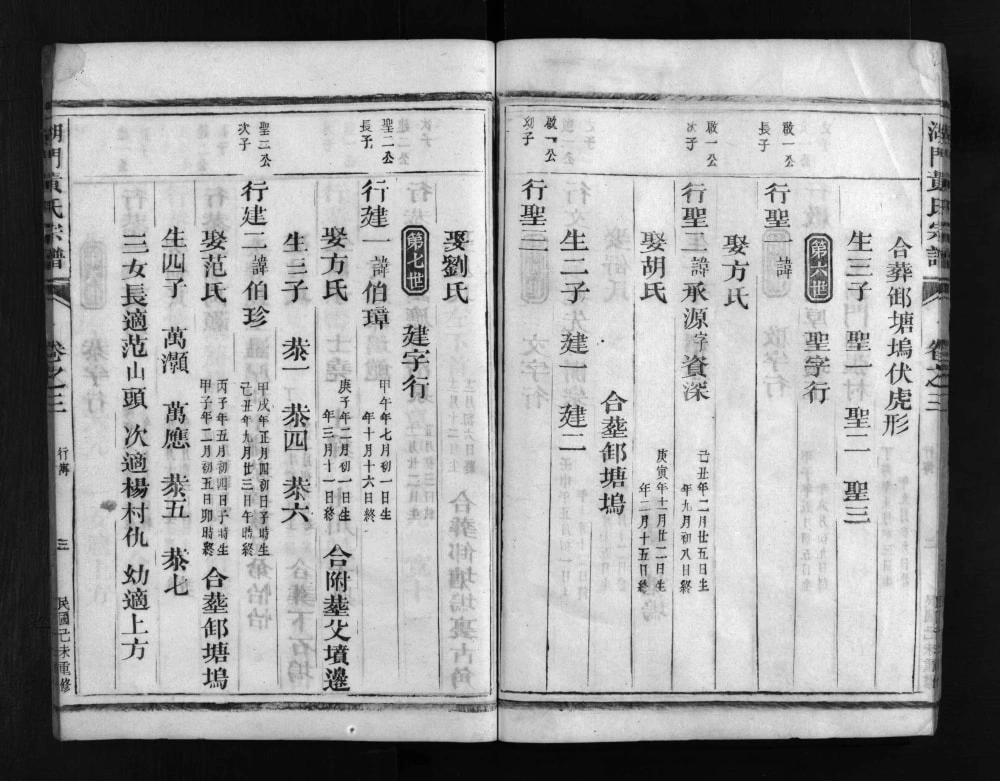 湖門黃氏宗譜
卷之三
合葬邮塘塢伏虎形
生三子 聖一 聖二 聖三
第六世 聖字行
啟一公長子
行聖一諱
娶方氏
啟一公次子
行聖二諱承源字資深
己丑年二月廿五日生
年九月初八日終
娶胡氏
庚寅年十一月廿二日生
年二月十五日終
合塟邮塘塢
生二子 建一 建二
啟一公幼子
行聖三
娶劉氏
第七世 建字行
聖二公長子
行建一諱伯璋
甲午年七月初一日生
年十月十六日終
娶方氏
庚子年二月初一日生
年三月十一日終
合附塟父墳邊
生三子 恭一 恭四 恭六
聖二公次子
行建二諱伯珍
甲戌年正月四初日子時生
己丑年九月廿三日午時終
娶范氏
丙子年五月初四日子時生
甲子年二月初五日卯時終
合塟邮塘塢
生四子 萬灝 萬應 恭五 恭七
三女長適范山頭 次適楊村仇 幼適上方
湖門黃氏宗譜
卷之三
行傳
三
民國己未重修